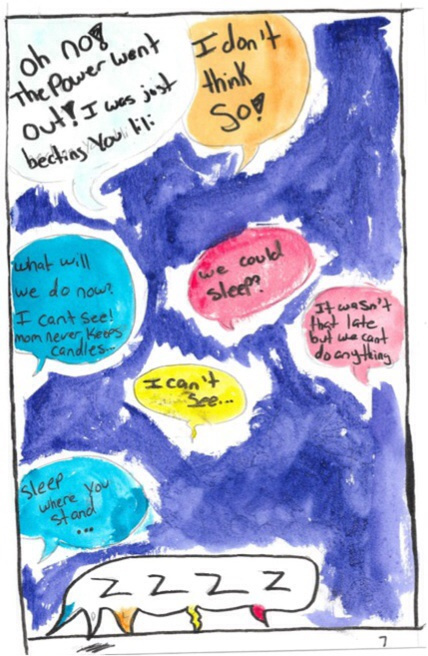 oh no!
The Power went
out! I was just
becting You lili
I don't
think
So!
what will
we do now?
I cant see!
mom never keeps
candles...
we could
sleep??
It wasn't
that late
but we cant
do anything
I can't
see...
sleep
where you
stand
...
Z Z Z Z
7